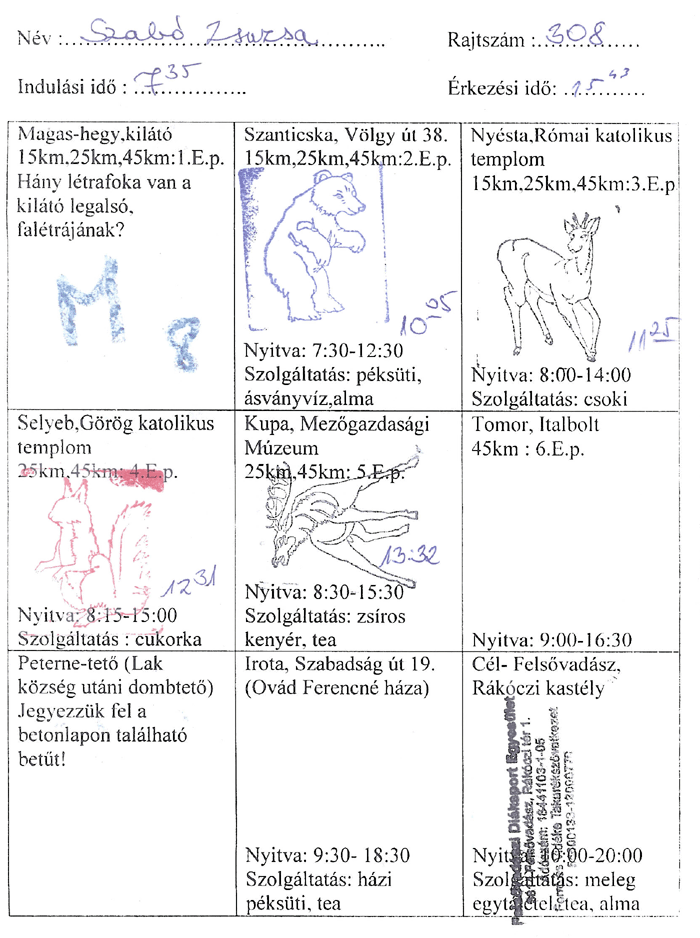 Név :Szabó Zsuzsa
Rajtszám :308
Indulási idő : 7 35
Érkezési idő: 15 43
Magas-hegy,kilátó
15km,25km,45km:1.E.p.
Hány létrafoka van a
kilátó legalsó,
falétrájának?
M 8
Szanticska, Völgy út 38.
15km,25km,45km:2.E.p.
10 05
Nyitva: 7:30-12:30
Szolgáltatás: péksüti,
ásványvíz,alma
Nyésta,Római katolikus
templom
15km,25km,45km:3.E.p
11 25
Nyitva: 8:00-14:00
Szolgáltatás: csoki
Selyeb,Görög katolikus
templom
25km,45km: 4.E.p.
12 31
Nyitva: 8:15-15:00
Szolgáltatás : cukorka
Kupa, Mezőgazdasági
Múzeum
25km,45km: 5.E.p.
13:32
Nyitva: 8:30-15:30
Szolgáltatás: zsíros
kenyér, tea
Tomor, Italbolt
45km : 6.E.p.
Nyitva: 9:00-16:30
Peterne-tető (Lak
község utáni dombtető)
Jegyezzük fel a
betonlapon található
betűt!
Irota, Szabadság út 19.
(Ovád Ferencné háza)
Nyitva: 9:30- 18:30
Szolgáltatás: házi
péksüti, tea
Cél- Felsővadász,
Rákóczi kastély
Felsővadászi Diáksport Egyesület
Felsővadász, Rákóczi tér 1.
Adószám: 18441103-1-05
Takarékszövetkezet
Nyitva: 10:00-20:00
Szolgáltatás: meleg
tea, alma